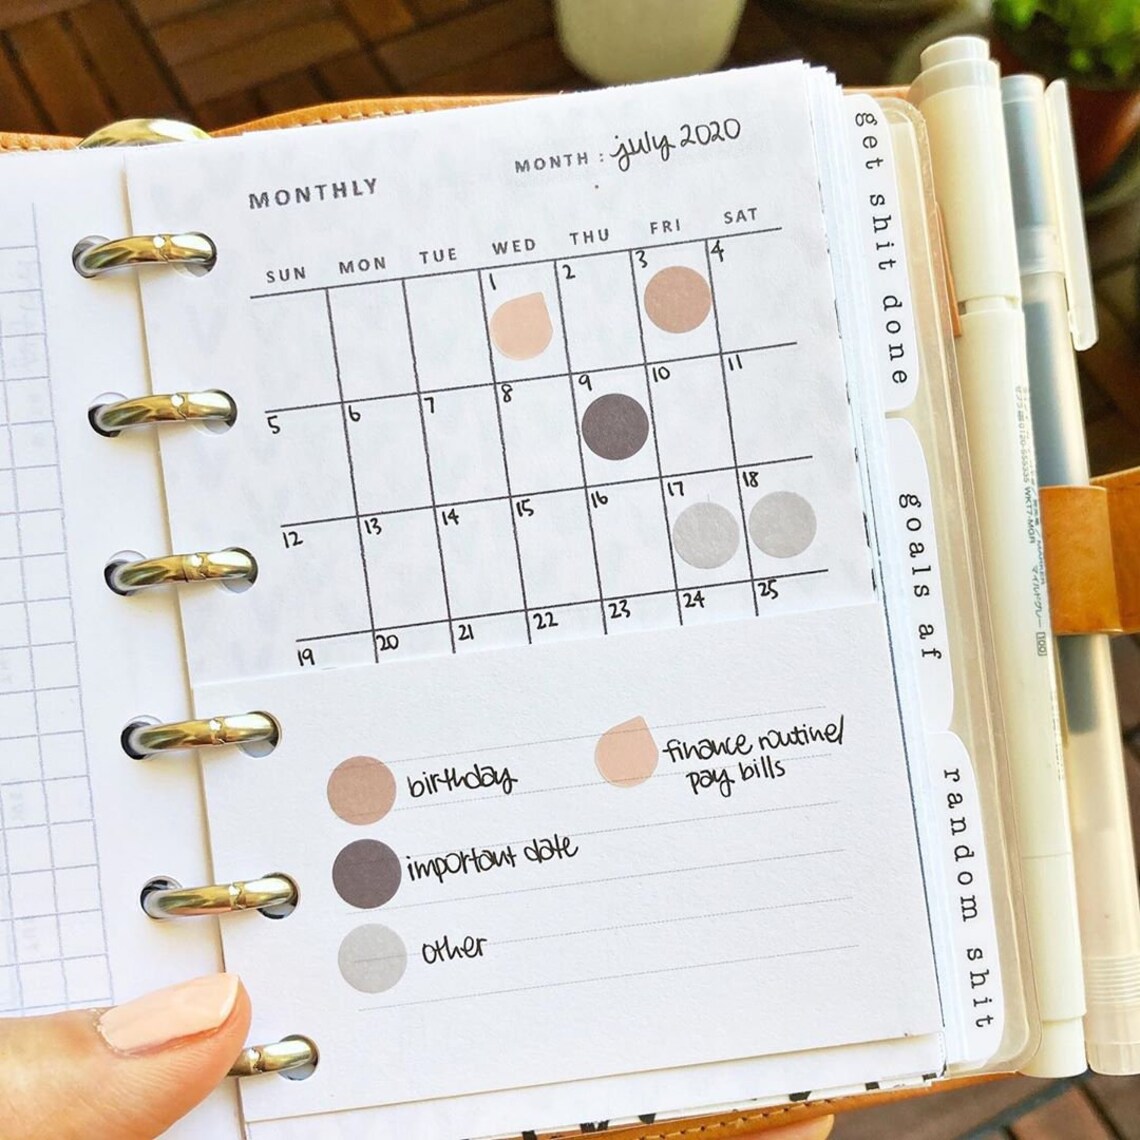 MONTHLY
MONTH : july 2020
SUN MON TUE WED THU FRI SAT
1 2 3 4
5 6 7 8 9 10 11
12 13 14 15 16 17 18
19 20 21 22 23 24 25
birthday
finance routine/
pay bills
important date
other
get shit done
goals af
random shit